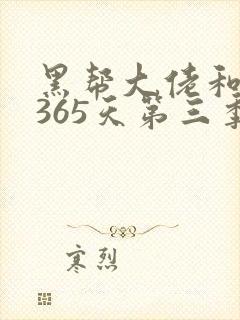 黑帮大佬和
365天第三季
寒烈